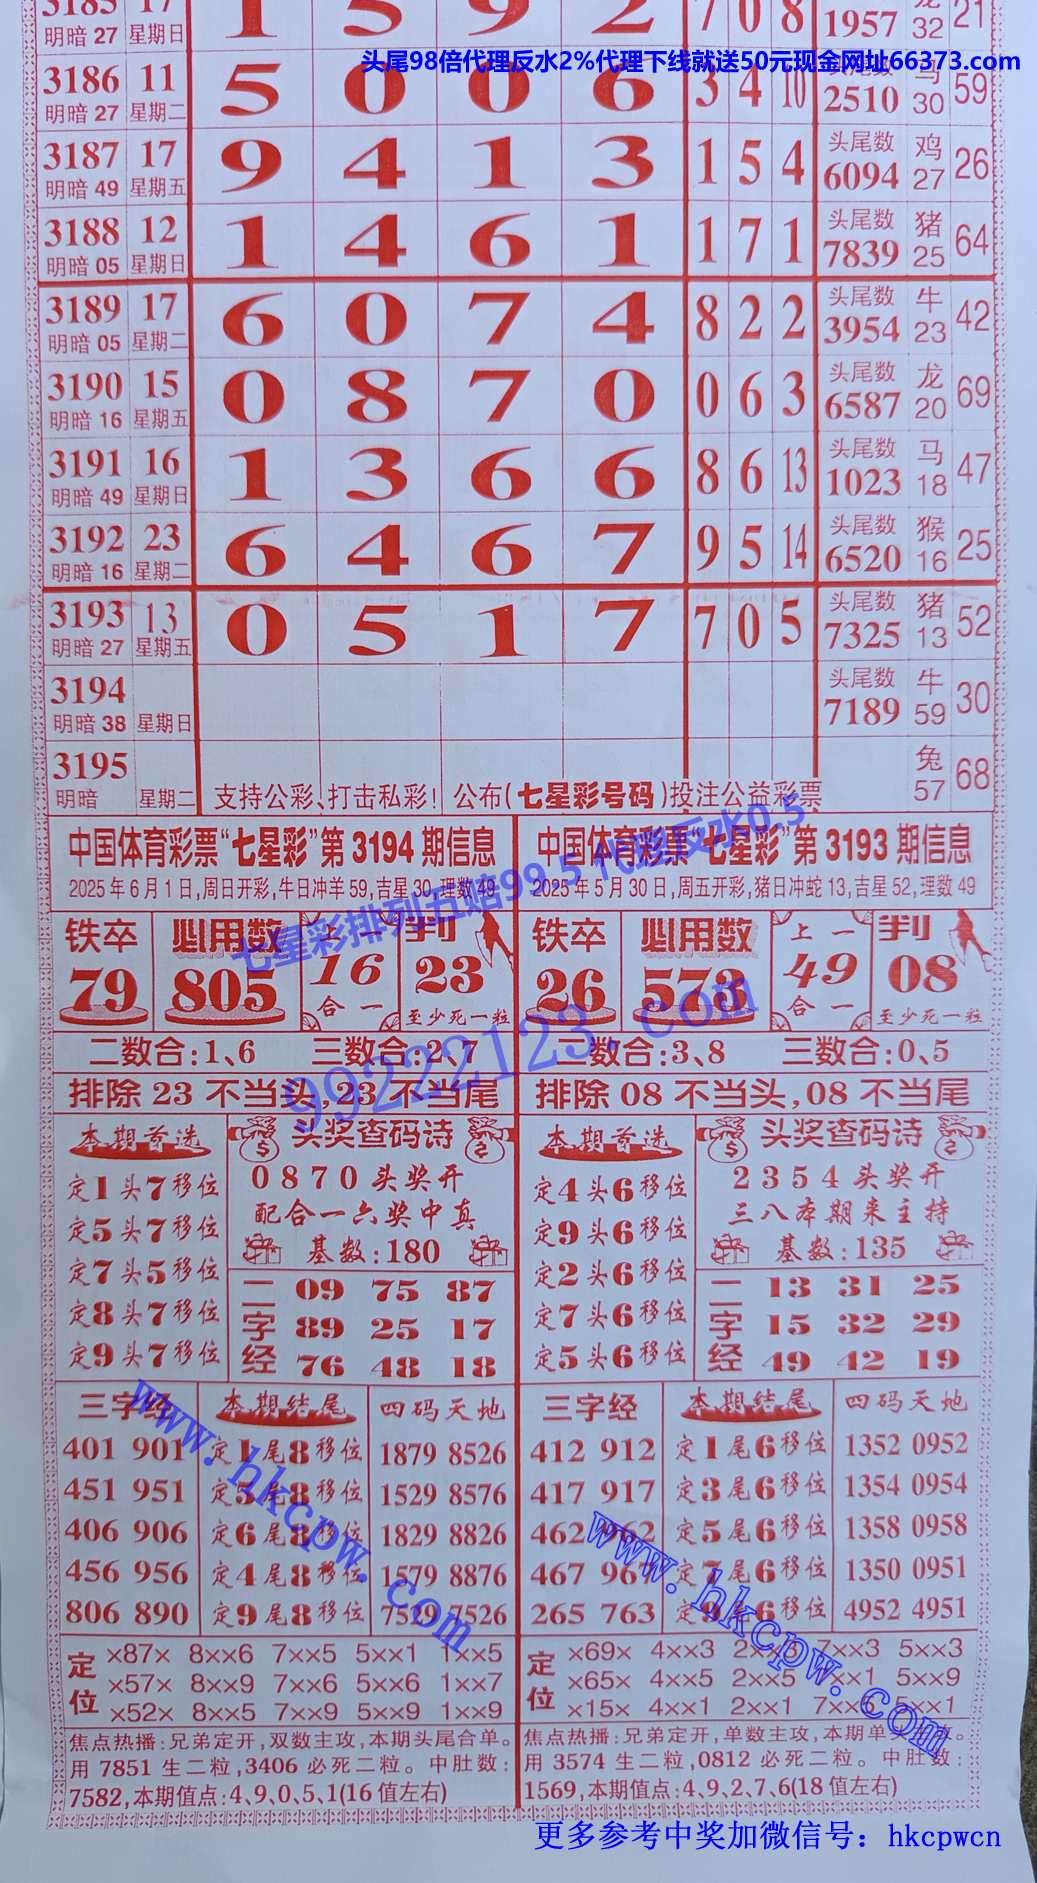 3185 17 1 5 9 2 7 0 8 1957 龙 32 21
明暗 27 星期日
头尾98倍代理反水2%代理下线就送50元现金网址66373.com
3186 11 5 0 0 6 3 4 10 头尾数 2510 马 30 59
明暗 27 星期二
3187 17 9 4 1 3 1 5 4 头尾数 6094 鸡 27 26
明暗 49 星期五
3188 12 1 4 6 1 1 7 1 头尾数 7839 猪 25 64
明暗 05 星期日
3189 17 6 0 7 4 8 2 2 头尾数 3954 牛 23 42
明暗 05 星期二
3190 15 0 8 7 0 0 6 3 头尾数 6587 龙 20 69
明暗 16 星期五
3191 16 1 3 6 6 8 6 13 头尾数 1023 马 18 47
明暗 49 星期日
3192 23 6 4 6 7 9 5 14 头尾数 6520 猴 16 25
明暗 16 星期二
3193 13 0 5 1 7 7 0 5 头尾数 7325 猪 13 52
明暗 27 星期五
3194 头尾数 7189 牛 59 30
明暗 38 星期日
3195 兔 57 68
明暗 星期二 支持公彩、打击私彩! 公布(七星彩号码)投注公益彩票
中国体育彩票“七星彩”第 3194 期信息
2025年6月1日,周日开彩,牛日冲羊59,吉星30,理数49
铁卒 79
必用数 805
上一 16 合一
判 23 至少死一粒
二数合:1、6 三数合:2、7
排除 23 不当头,23 不当尾
本期首选
定1头7移位
定5头7移位
定7头5移位
定8头7移位
定9头7移位
头奖查码诗
0870头奖开
配合一六奖中真
基数:180
二字经
09 75 87
89 25 17
76 48 18
三字经
401 901
451 951
406 906
456 956
806 890
本期结尾
定1尾8移位
定5尾8移位
定6尾8移位
定4尾8移位
定9尾8移位
四码天地
1879 8526
1529 8576
1829 8826
1579 8876
7529 7526
定位
×87× 8××6 7××5 5××1 1××5
×57× 8××9 7××6 5××6 1××7
×52× 8××5 7××9 5××9 1××9
焦点热播:兄弟定开,双数主攻,本期头尾合单。
用 7851 生二粒,3406 必死二粒。中肚数:
7582,本期值点:4、9、0、5、1(16值左右)
中国体育彩票“七星彩”第 3193 期信息
2025年5月30日,周五开彩,猪日冲蛇13,吉星52,理数49
铁卒 26
必用数 573
上一 49 合一
判 08 至少死一粒
二数合:3、8 三数合:0、5
排除 08 不当头,08 不当尾
本期首选
定4头6移位
定9头6移位
定2头6移位
定7头6移位
定5头6移位
头奖查码诗
2354头奖开
三八本期来主持
基数:135
二字经
13 31 25
15 32 29
49 42 19
三字经
412 912
417 917
462 962
467 967
265 763
本期结尾
定1尾6移位
定3尾6移位
定5尾6移位
定7尾6移位
定9尾6移位
四码天地
1352 0952
1354 0954
1358 0958
1350 0951
4952 4951
定位
×69× 4××3 2××0 7××3 5××3
×65× 4××5 2××5 ××1 5××9
×15× 4××1 2××1 7××6 5××1
焦点热播:兄弟定开,单数主攻,本期单头
用 3574 生二粒,0812 必死二粒。中肚数:
1569,本期值点:4、9、2、7、6(18值左右)
七星彩排列五赔99.5 代理反水0.5
99222123.com
www.hkcpw.com
www.hkcpw.com
更多参考中奖加微信号：hkcpwcn